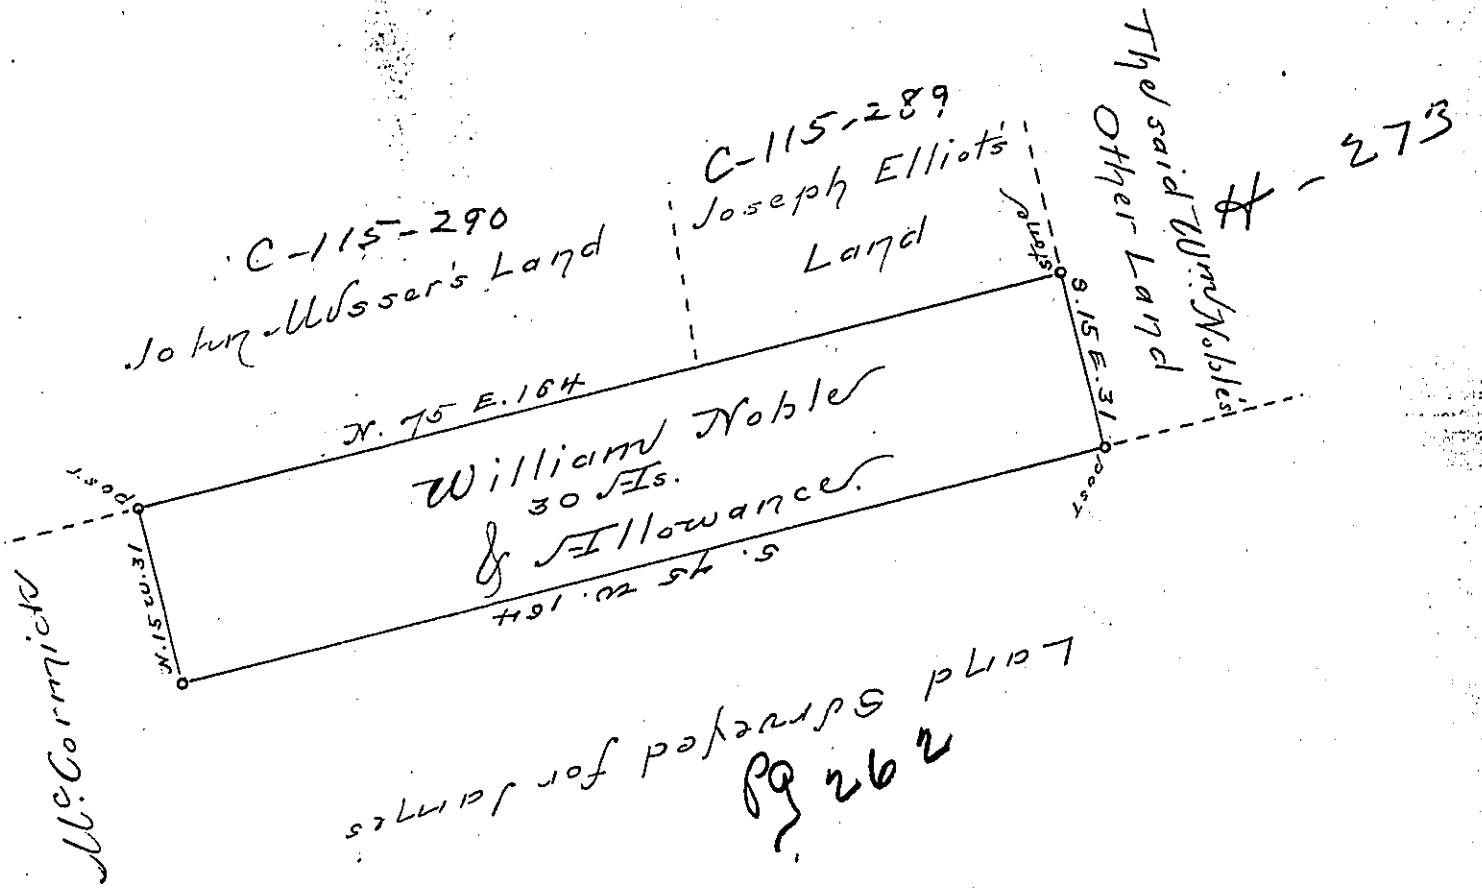 C-115-290
John Musser's Land
C-115-289
Joseph Elliots
Land
The said Wm. Noble's
Other Land
H-273
stone
S. 15 E. 31
post
N. 75 E. 164
William Noble
30 As.
& Allowance.
S. 75 W. 164
post
N. 15 W. 31
Land Surveyed for James
McCormick
Pg 262